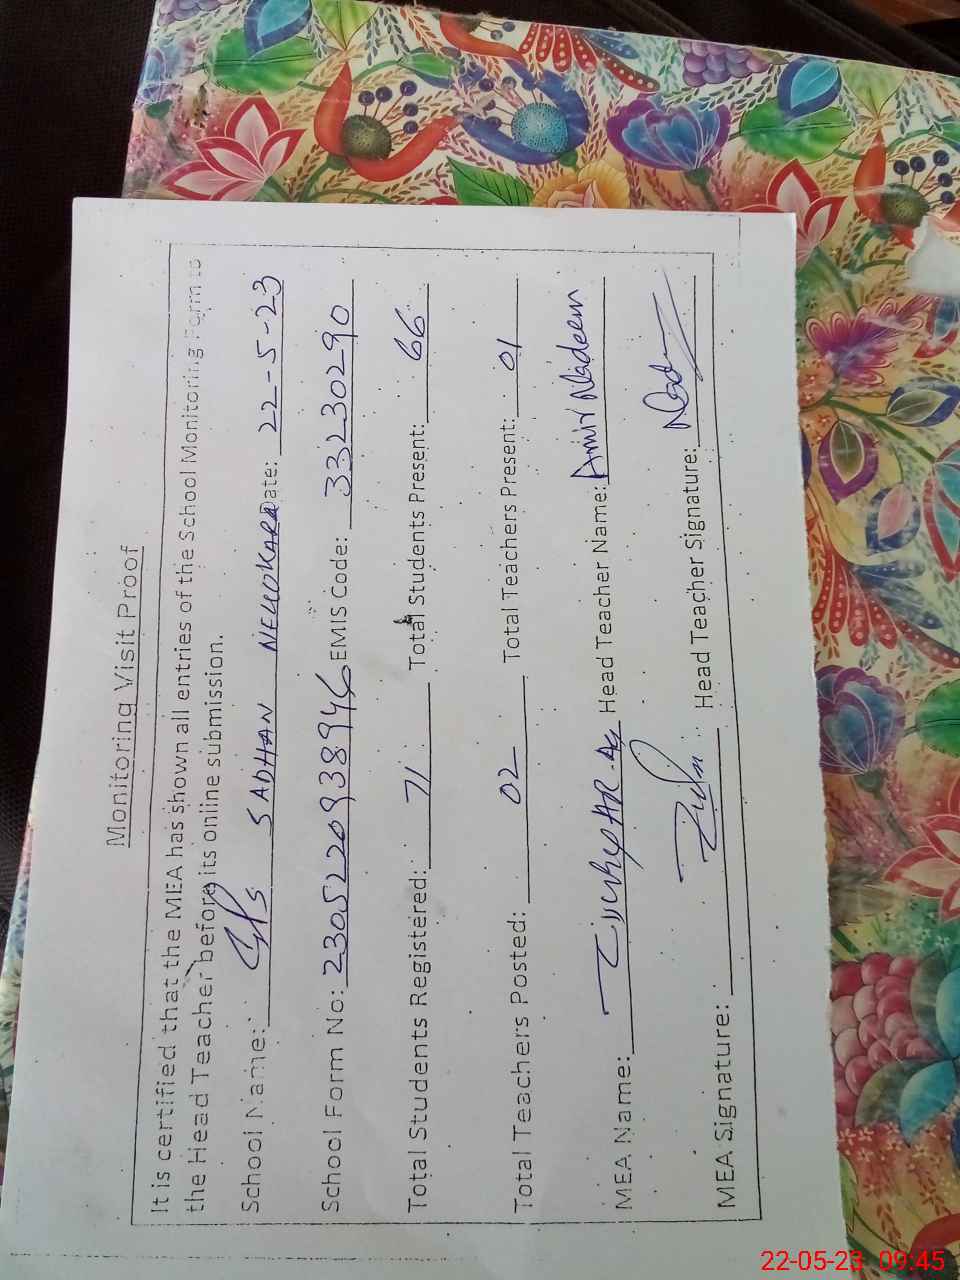 Monitoring Visit Proof
It is certified that the MEA has shown all entries of the School Monitoring Form to
the Head Teacher before its online submission.
School Name: GPS SADHAN NEWOKARA Date: 22-5-23
School Form No: 230522093894 EMIS Code: 33230290
Total Students Registered: 71 Total Students Present: 66
Total Teachers Posted: 02 Total Teachers Present: 01
MEA Name: Head Teacher Name: Amir Nadeem
MEA Signature: Head Teacher Signature:
22-05-23 09:45